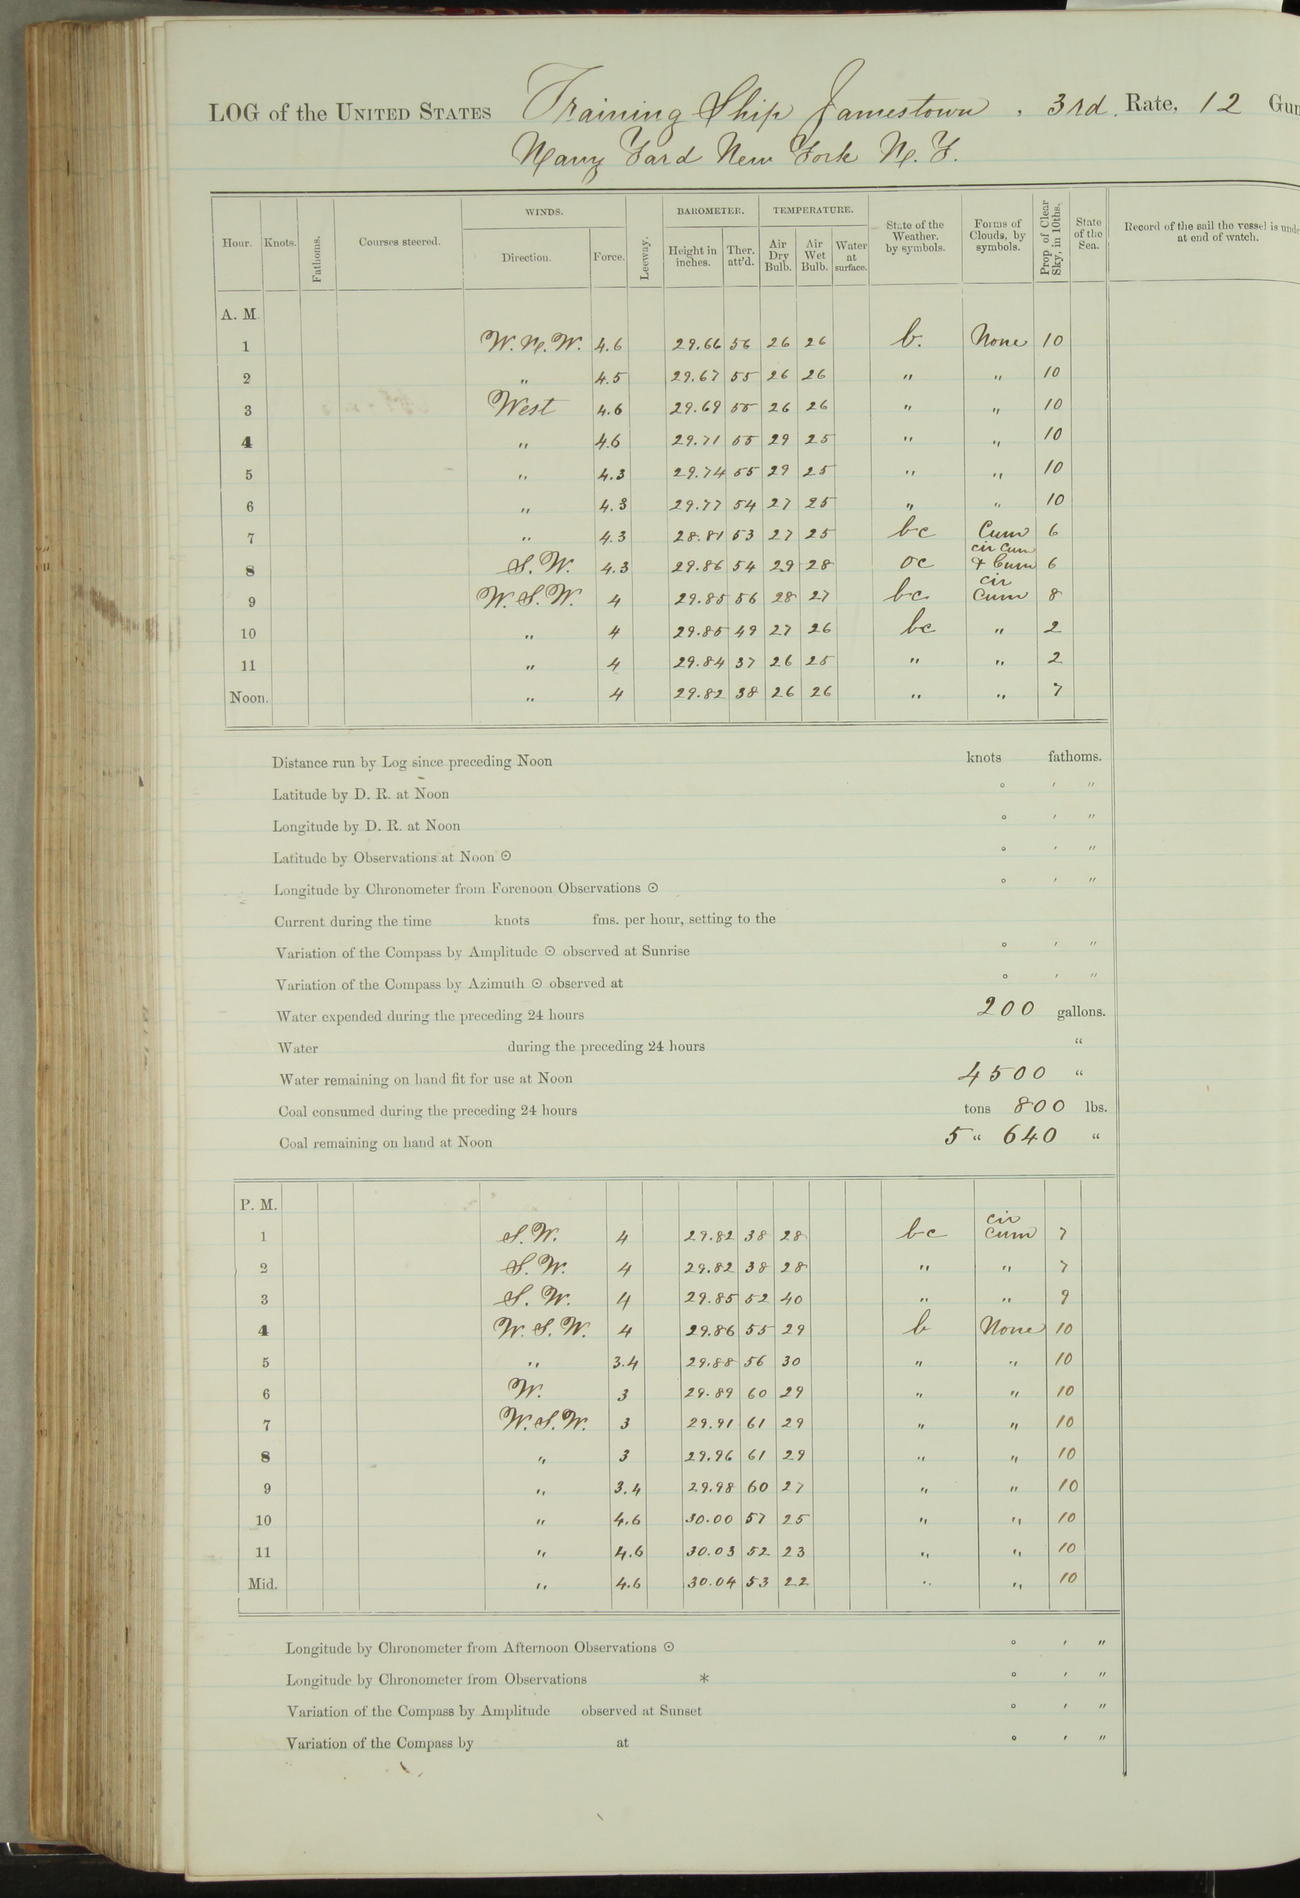 LOG of the UNITED STATES Training Ship Jamestown, 3rd. Rate, 12 Gun
Navy Yard New York N. Y.
Hour. Knots. Fathoms. Courses steered. WINDS. Direction. Force. Leeway. BAROMETER. Height in inches. Ther. att'd. TEMPERATURE. Air Dry Bulb. Air Wet Bulb. Water at surface. State of the Weather, by symbols. Forms of Clouds, by symbols. Prop. of Clear Sky, in 10ths. State of the Sea. Record of the sail the vessel is unde at end of watch.
A. M.
1 W.N.W. 4.6 29.66 56 26 26 b. None 10
2 " 4.5 29.67 55 26 26 " " 10
3 West 4.6 29.69 55 26 26 " " 10
4 " 4.6 29.71 55 29 25 " " 10
5 " 4.3 29.74 55 29 25 " " 10
6 " 4.3 29.77 54 27 25 " " 10
7 " 4.3 28.81 53 27 25 bc Cum 6
8 S.W. 4.3 29.86 54 29 28 oc cir cum & Cum 6
9 W.S.W. 4 29.85 56 28 27 bc cir Cum 8
10 " 4 29.85 49 27 26 bc " 2
11 " 4 29.84 37 26 25 " " 2
Noon. " 4 29.82 38 26 26 " " 7
Distance run by Log since preceding Noon knots fathoms.
Latitude by D. R. at Noon ° ′ ″
Longitude by D. R. at Noon ° ′ ″
Latitude by Observations at Noon ☉ ° ′ ″
Longitude by Chronometer from Forenoon Observations ☉ ° ′ ″
Current during the time knots fms. per hour, setting to the
Variation of the Compass by Amplitude ☉ observed at Sunrise ° ′ ″
Variation of the Compass by Azimuth ☉ observed at ° ′ ″
Water expended during the preceding 24 hours 200 gallons.
Water during the preceding 24 hours “
Water remaining on hand fit for use at Noon 4500 “
Coal consumed during the preceding 24 hours tons 800 lbs.
Coal remaining on hand at Noon 5 “ 640 “
P. M.
1 S.W. 4 29.82 38 28 bc cir cum 7
2 S.W. 4 29.82 38 28 " " 7
3 S.W. 4 29.85 52 40 " " 9
4 W.S.W. 4 29.86 55 29 b None 10
5 " 3.4 29.88 56 30 " " 10
6 W. 3 29.89 60 29 " " 10
7 W.S.W. 3 29.91 61 29 " " 10
8 " 3 29.96 61 29 " " 10
9 " 3.4 29.98 60 27 " " 10
10 " 4.6 30.00 57 25 " " 10
11 " 4.6 30.03 52 23 " " 10
Mid. " 4.6 30.04 53 22 " " 10
Longitude by Chronometer from Afternoon Observations ☉ ° ′ ″
Longitude by Chronometer from Observations * ° ′ ″
Variation of the Compass by Amplitude observed at Sunset ° ′ ″
Variation of the Compass by at ° ′ ″